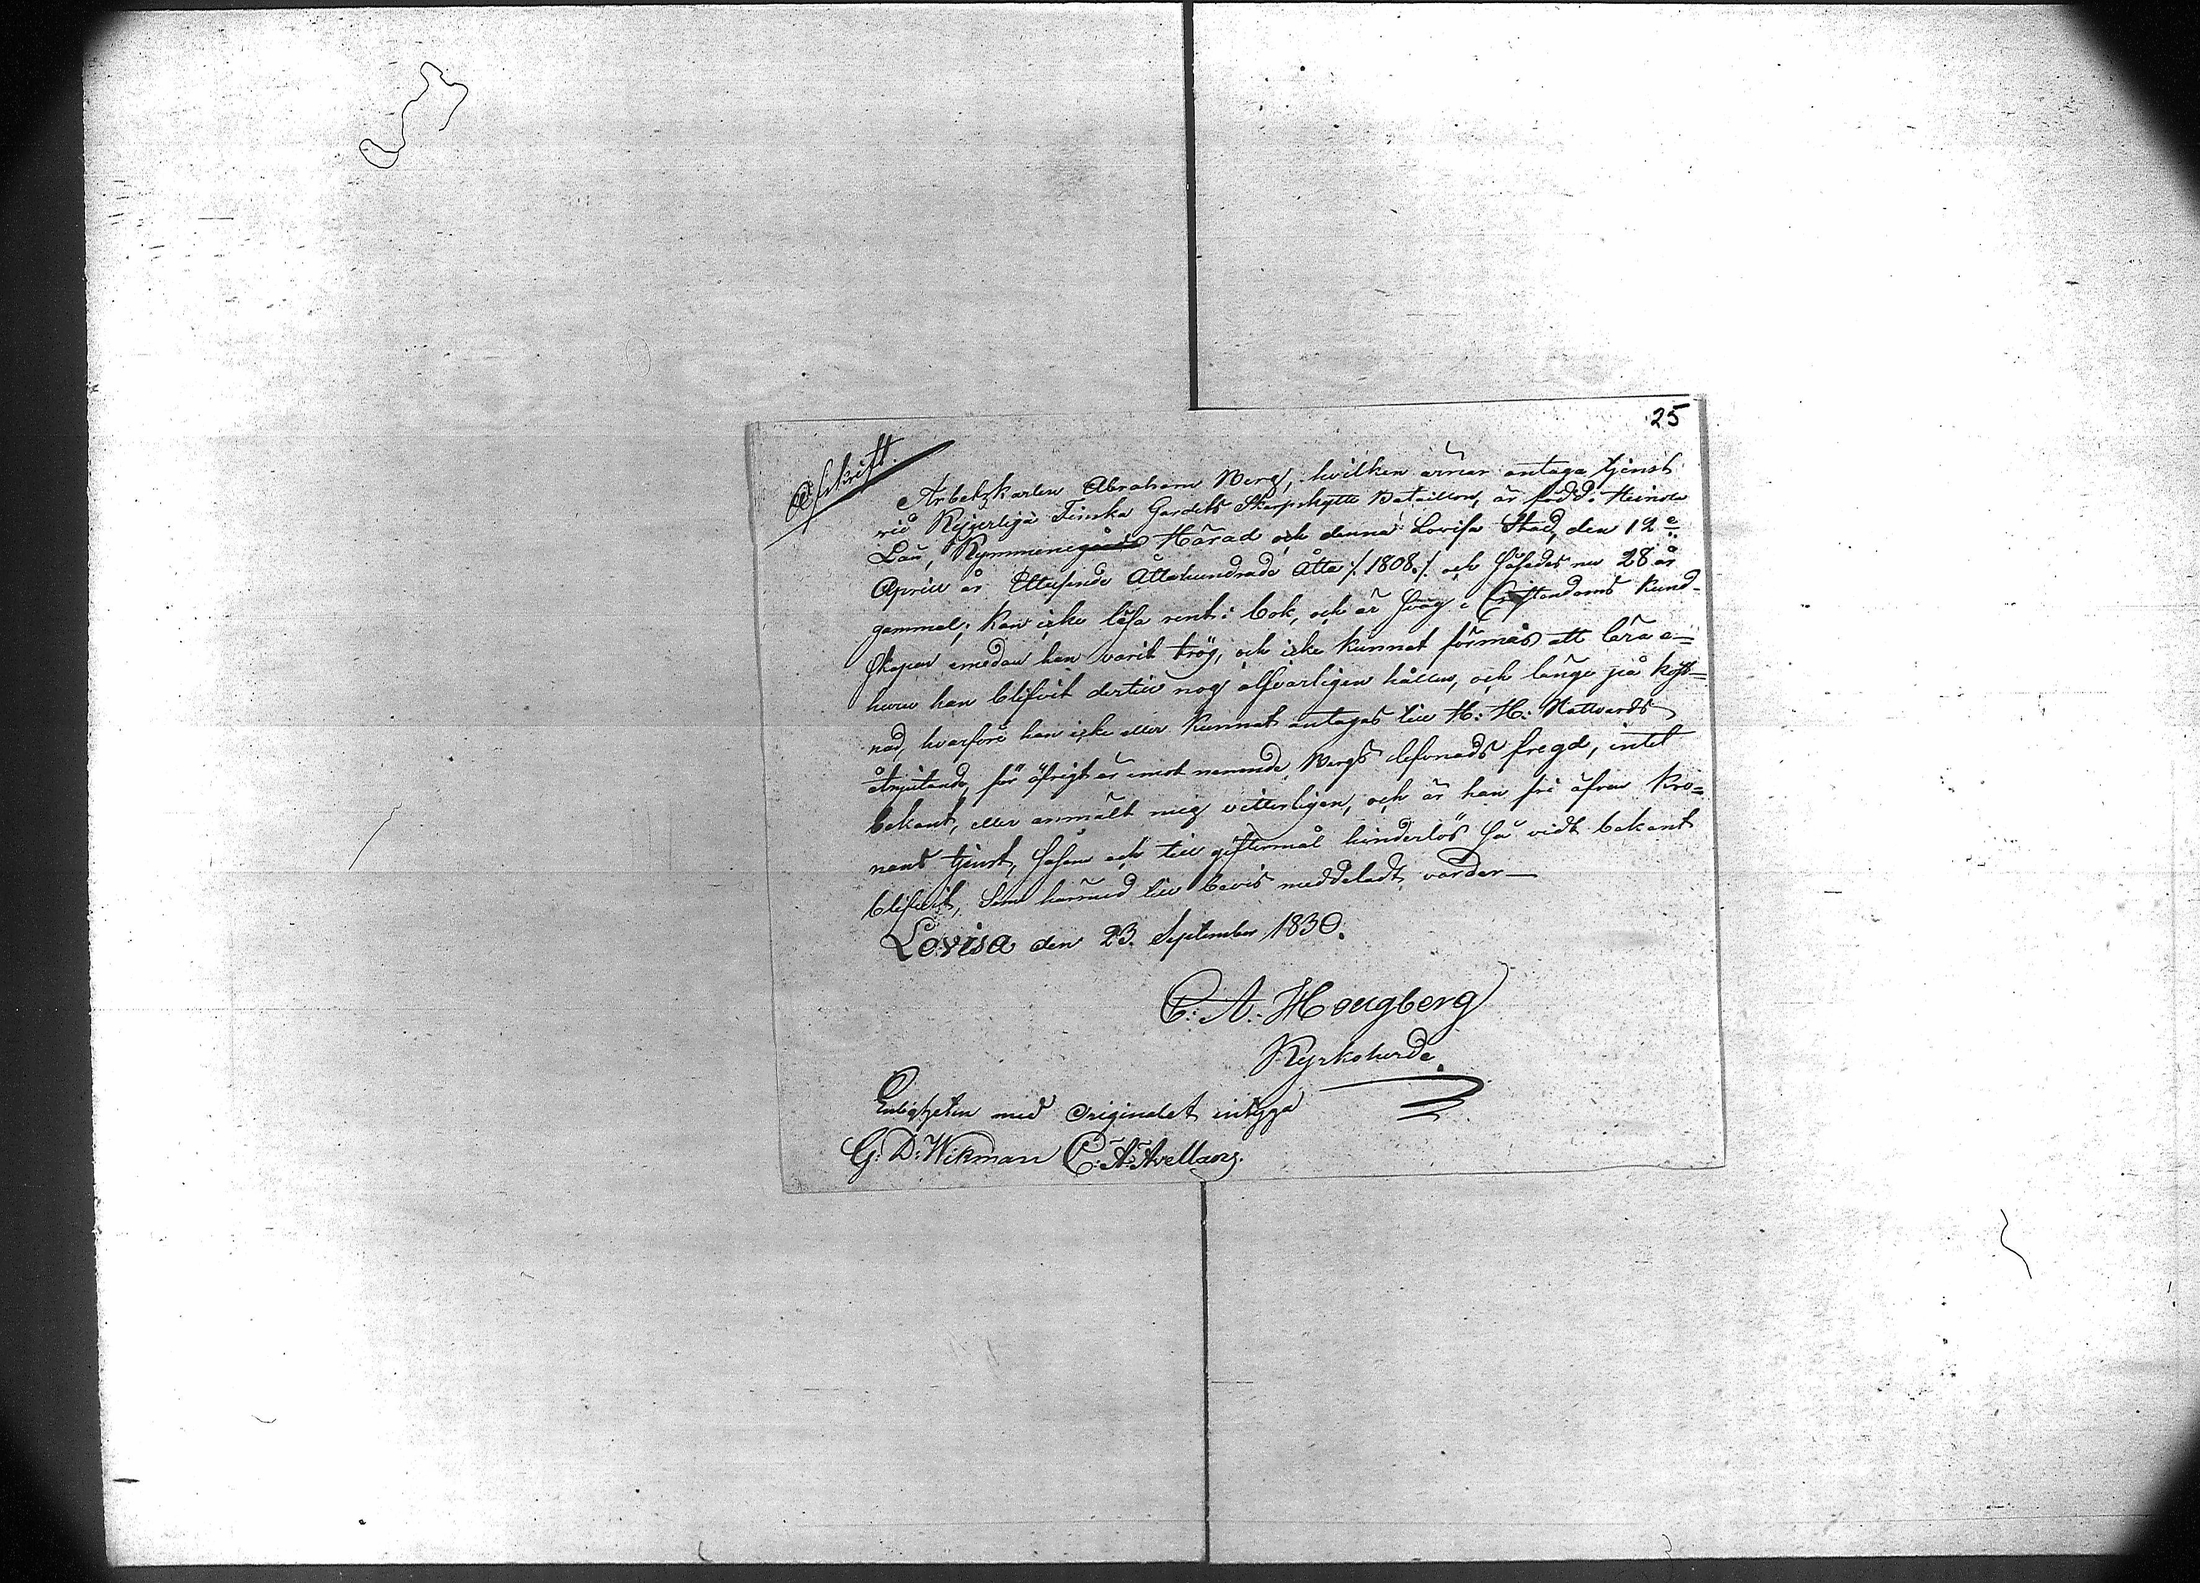 25
Afskrift.
Arbetskarlen Abraham Berg, hvilken ärnar antaga tjenst
vid Kejserliga Finska Gardets Skarpskytte Bataillon, är född i Heinola
Län, Kymmenegårds Härad och denna Lovisa Stad, den 12e
April år Ettusende Åttahundrade Åtta /: 1808. /: och således nu 28 år
gammal; kan icke läsa rent i bok, och är svag i Christendoms kund-
skapen emedan han varit trög, och icke kunnat förmås att lära e-
huru han blifvit dertill nog alfvarligen hållen, och länge på kost-
nad, hvarföre han icke eller kunnat antagas till H: H: Nattvards
åtnjutande, för öfrigt är emot nemnde Bergs lefvnads fregd, intet
bekant, eller anmält mig vitterligen, och är han fri ifrån kro-
nans tjenst, såsom och till giftermål hinderlös så vidt bekant
blifvit, Som härmed till bevis meddeladt varder
Lovisa den 23. September 1830.
C: A. Hougberg
Kyrkoherde.
Enligheten med Originalet intyga
G: D: Wikman C: A: Avellan